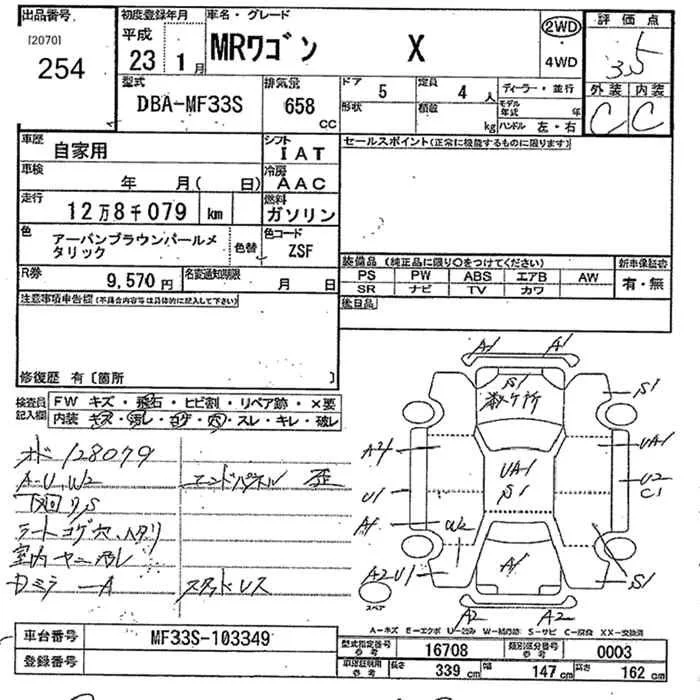 出品番号
[2070]
254
初度登録年月
平成
23 1月
車名・グレード
MRワゴン X
2WD
4WD
評価点
3.5
外装 内装
C C
型式
DBA-MF33S
排気量
658
CC
ドア 5
形状
定員 4 人
積載 kg
ディーラー・並行
モデル年式 年
ハンドル 左・右
車歴
自家用
シフト
IAT
セールスポイント(正常に機能するものに限ります)
車検
年 月( 日)
冷房
AAC
走行
12万8千079 km
燃料
ガソリン
色
アーバンブラウンパールメタリック
色替
色コード
ZSF
装備品 (純正品に限り○をつけてください)
新車保証書
PS PW ABS エアB AW
SR ナビ TV カワ
有・無
R券
9,570円
名変通知期限
月 日
後日品
注意事項申告欄(不具合内容等は具体的に記入して下さい)
修復歴 有〔箇所 〕
検査員記入欄
FW キズ・飛石・ヒビ割・リペア跡・×要
内装・キズ・汚レ・コゲ・穴・スレ・キレ・破レ
オド 128079
A-U, W2 エンドパネル 歪
下回り S
シートコゲ穴、ヘタリ
室内ヤニ汚レ
カミラ ーA スタッドレス
A1 A1
S1
数ヶ所
S1
A2 UA1
UA1
S1
U2
C1
U1
A1
W2
A1
A2 U1
S1
スペア
A2 A2
A-キズ E-エクボ U-凹み W-補修跡 S-サビ C-腐食 XX-交換済
車台番号
MF33S-103349
登録番号
型式指定番号
参考
16708
類別区分番号
参考
0003
車検証明用
参考
長さ 339 cm
幅 147 cm
高さ 162 cm